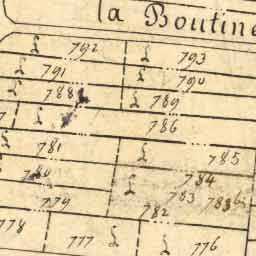 la Boutine
L 792 L 793
L 791 L 790
L 788 L 789
L 786
L 781 L 785
780 L 784
779 783 783 b
782
778 777 L L 776